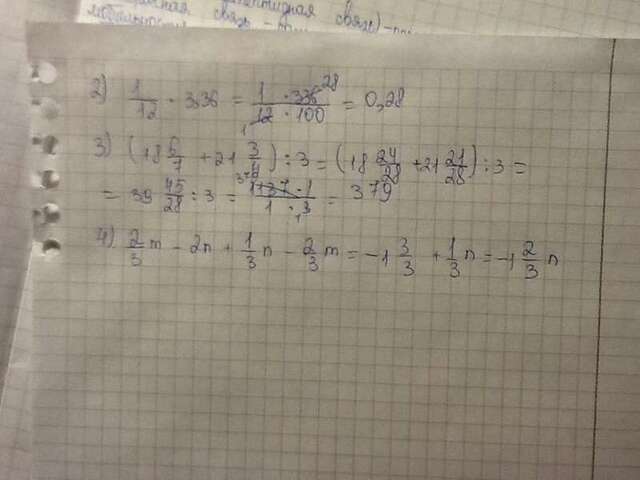 связь
2) 1/12 · 3,36 = 1 · 336 28 / 12 · 100 1 = 0,28
3) (18 6/7 + 21 3/4) : 3 = (18 24/28 + 21 21/28) : 3 =
= 39 45/28 : 3 = 1137 · 1 379 / 1 · 3 1 = 379
4) 2/3 m - 2n + 1/3 n - 2/3 m = -1 3/3 + 1/3 n = -1 2/3 n